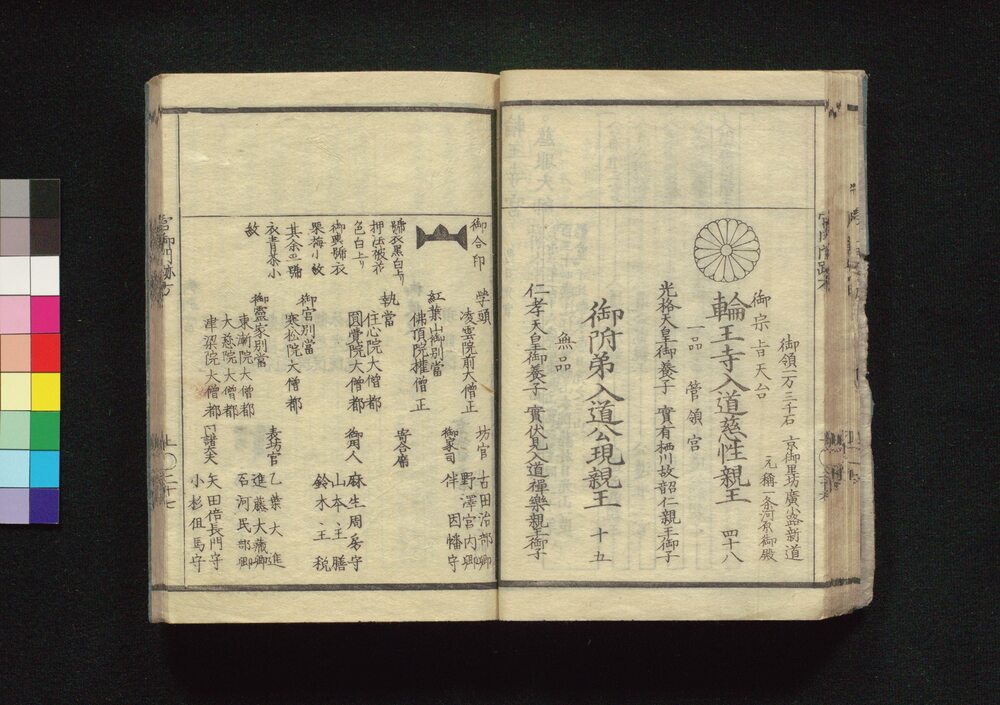 御領一万三千石 京御里坊廣小路新道
元稱一条河原御殿
御宗旨天台
輪王寺入道慈性親王 四十八
一品 管領宮
光格天皇御養子 實有栖川故韶仁親王御子
御附弟入道公現親王 十五
無品
仁孝天皇御養子 實伏見入道禪樂親王御子
御合印
學頭
凌雲院前大僧正
紅葉山御別當
佛頂院權僧正
執當
住心院大僧都
圓覺院大僧都
御宮別當
寒松院大僧都
御靈家別當
東漸院大僧都
大慈院大僧都
津梁院大僧都
坊官
古田治部卿
野澤宮内卿
御家司
伴 因幡守
寄合席
御用人
麻生周房守
山本主膳
鈴木主税
表坊官
乙葉大進
進藤大藏卿
石河民部卿
同諸大夫
矢田倍長門守
小杉但馬守
栗梅小紋
衣青茶小
紋
宮御門跡方